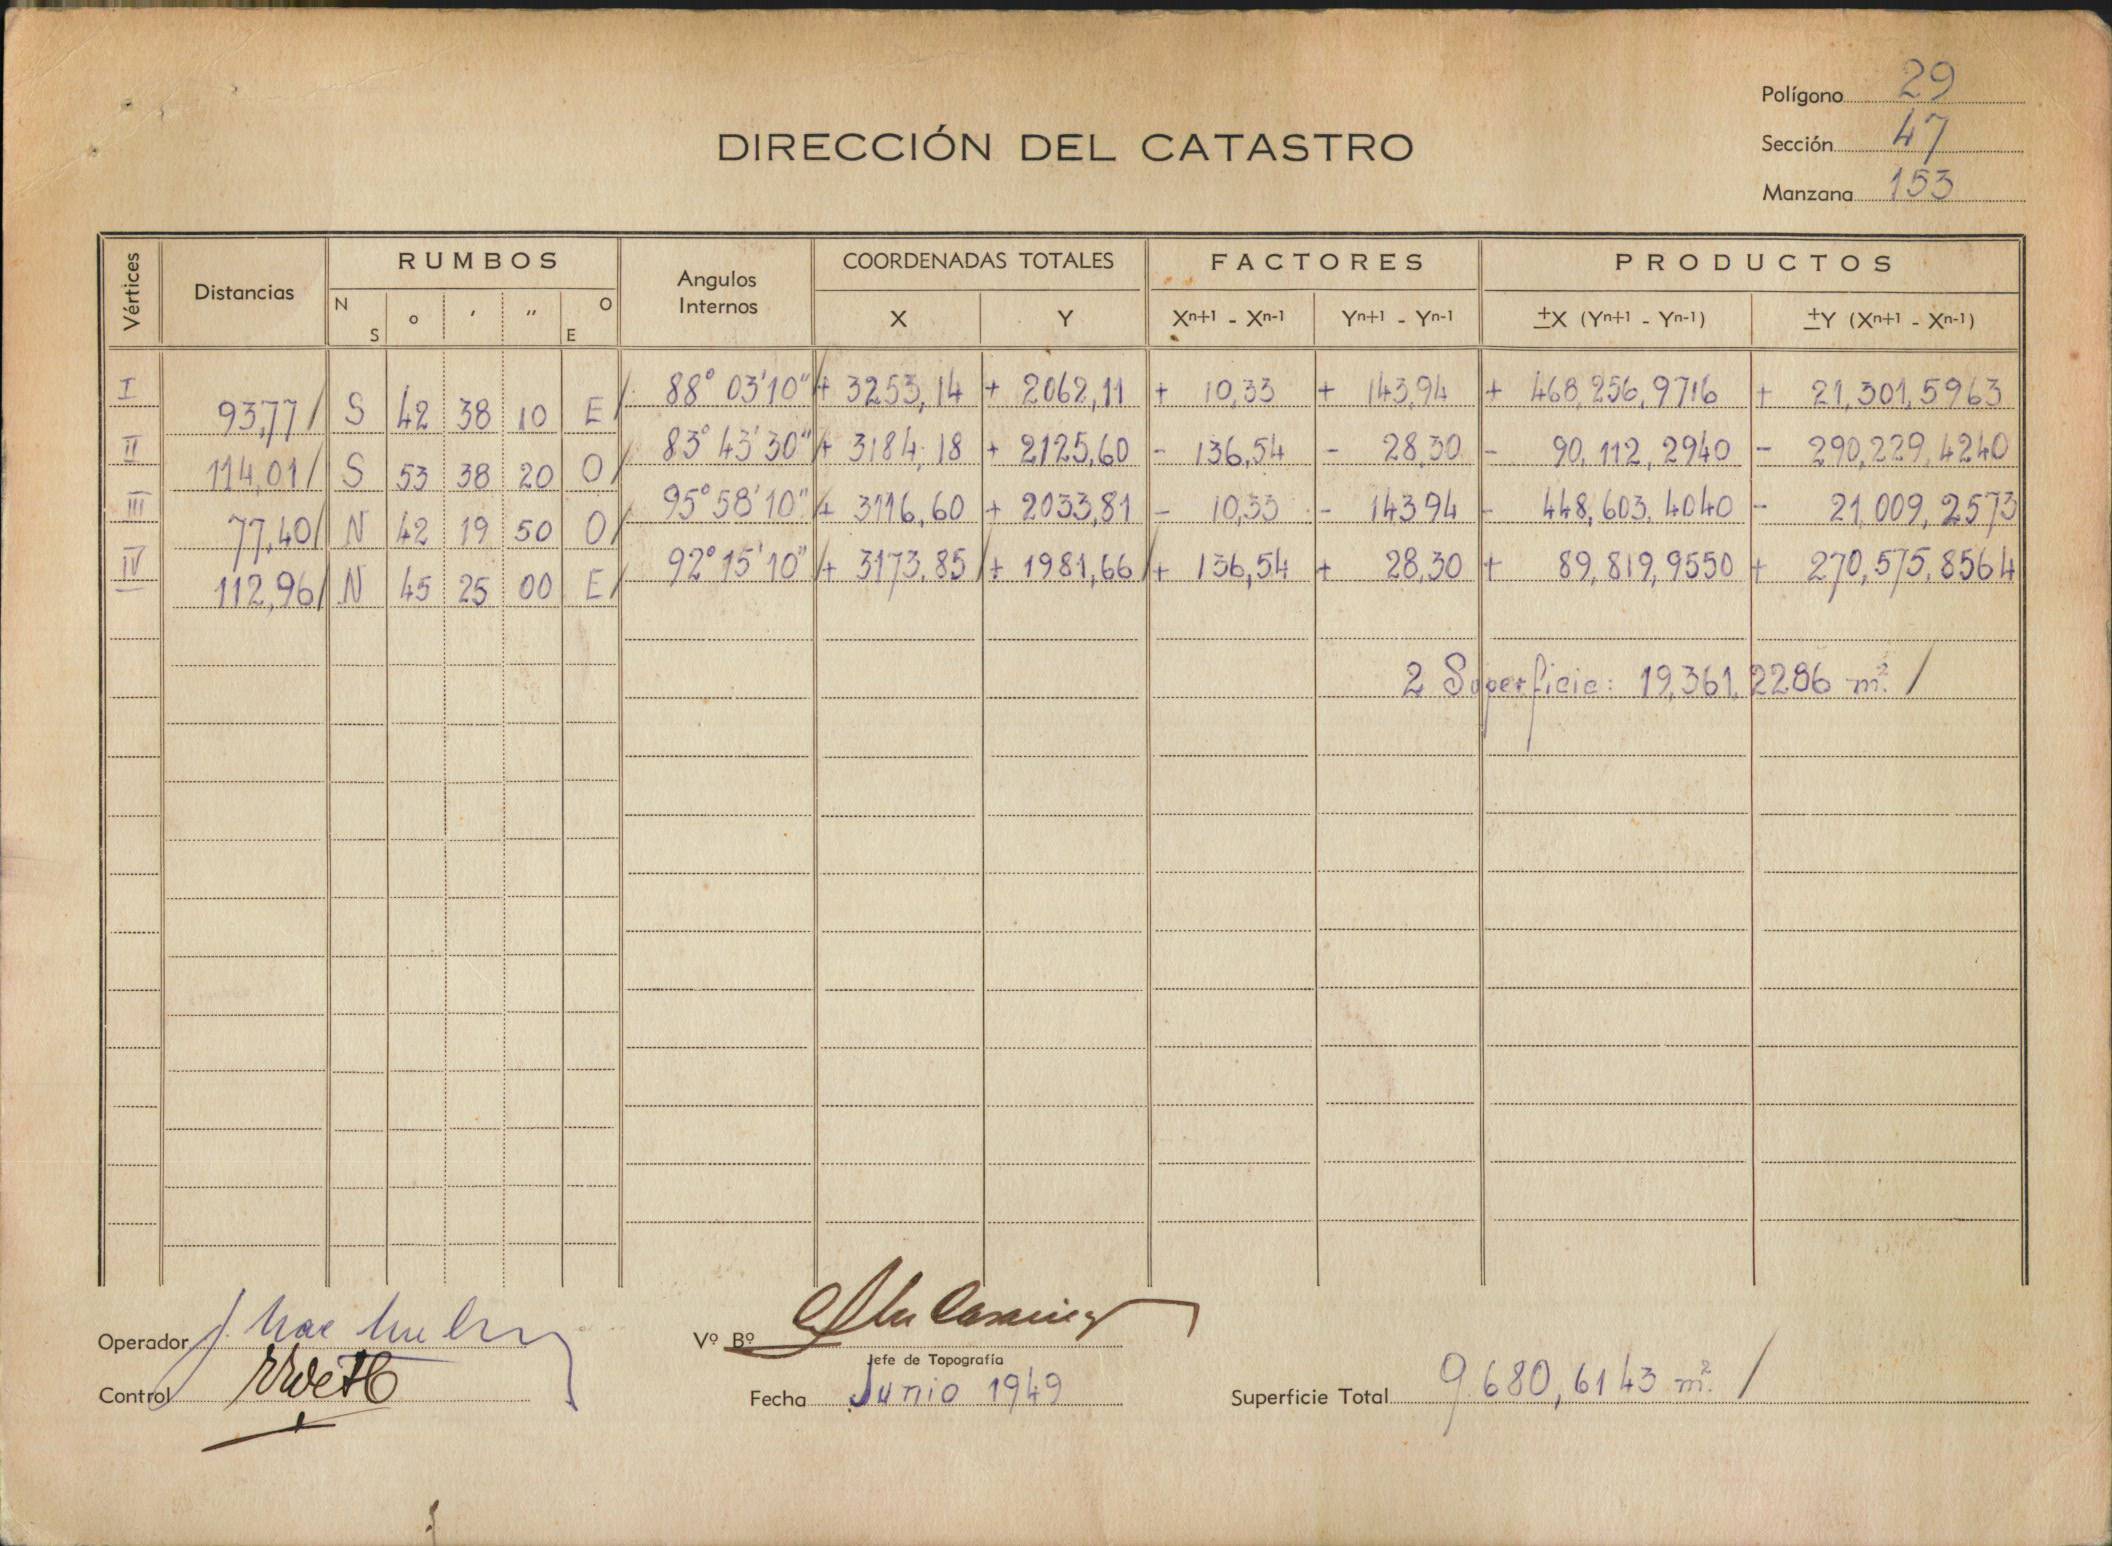 Polígono 29
DIRECCIÓN DEL CATASTRO
Sección 47
Manzana 153
Vértices Distancias RUMBOS Angulos Internos COORDENADAS TOTALES FACTORES PRODUCTOS
N S ° ′ ″ O E X Y Xⁿ⁺¹ - Xⁿ⁻¹ Yⁿ⁺¹ - Yⁿ⁻¹ ±X (Yⁿ⁺¹ - Yⁿ⁻¹) ±Y (Xⁿ⁺¹ - Xⁿ⁻¹)
I 88° 03' 10" + 3253,14 + 2062,11 + 10,33 + 143,94 + 468,256,9716 + 21,301,5963
93,77 / S 42 38 10 E /
II 83° 43' 30" + 3184,18 + 2125,60 - 136,54 - 28,30 - 90,112,2940 - 290,229,4240
114,01 / S 53 38 20 O /
III 95° 58' 10" + 3116,60 + 2033,81 - 10,33 - 143,94 - 448,603,4040 - 21,009,2573
77,40 / N 42 19 50 O /
IV 92° 15' 10" / + 3173,85 / + 1981,66 / + 136,54 + 28,30 + 89,819,9550 + 270,575,8564
112,96 / N 45 25 00 E /
2 Superficie: 19,361,2286 m². /
Operador
Vº Bº
Jefe de Topografía
Control
Fecha Junio 1949
Superficie Total 9.680,6143 m². /